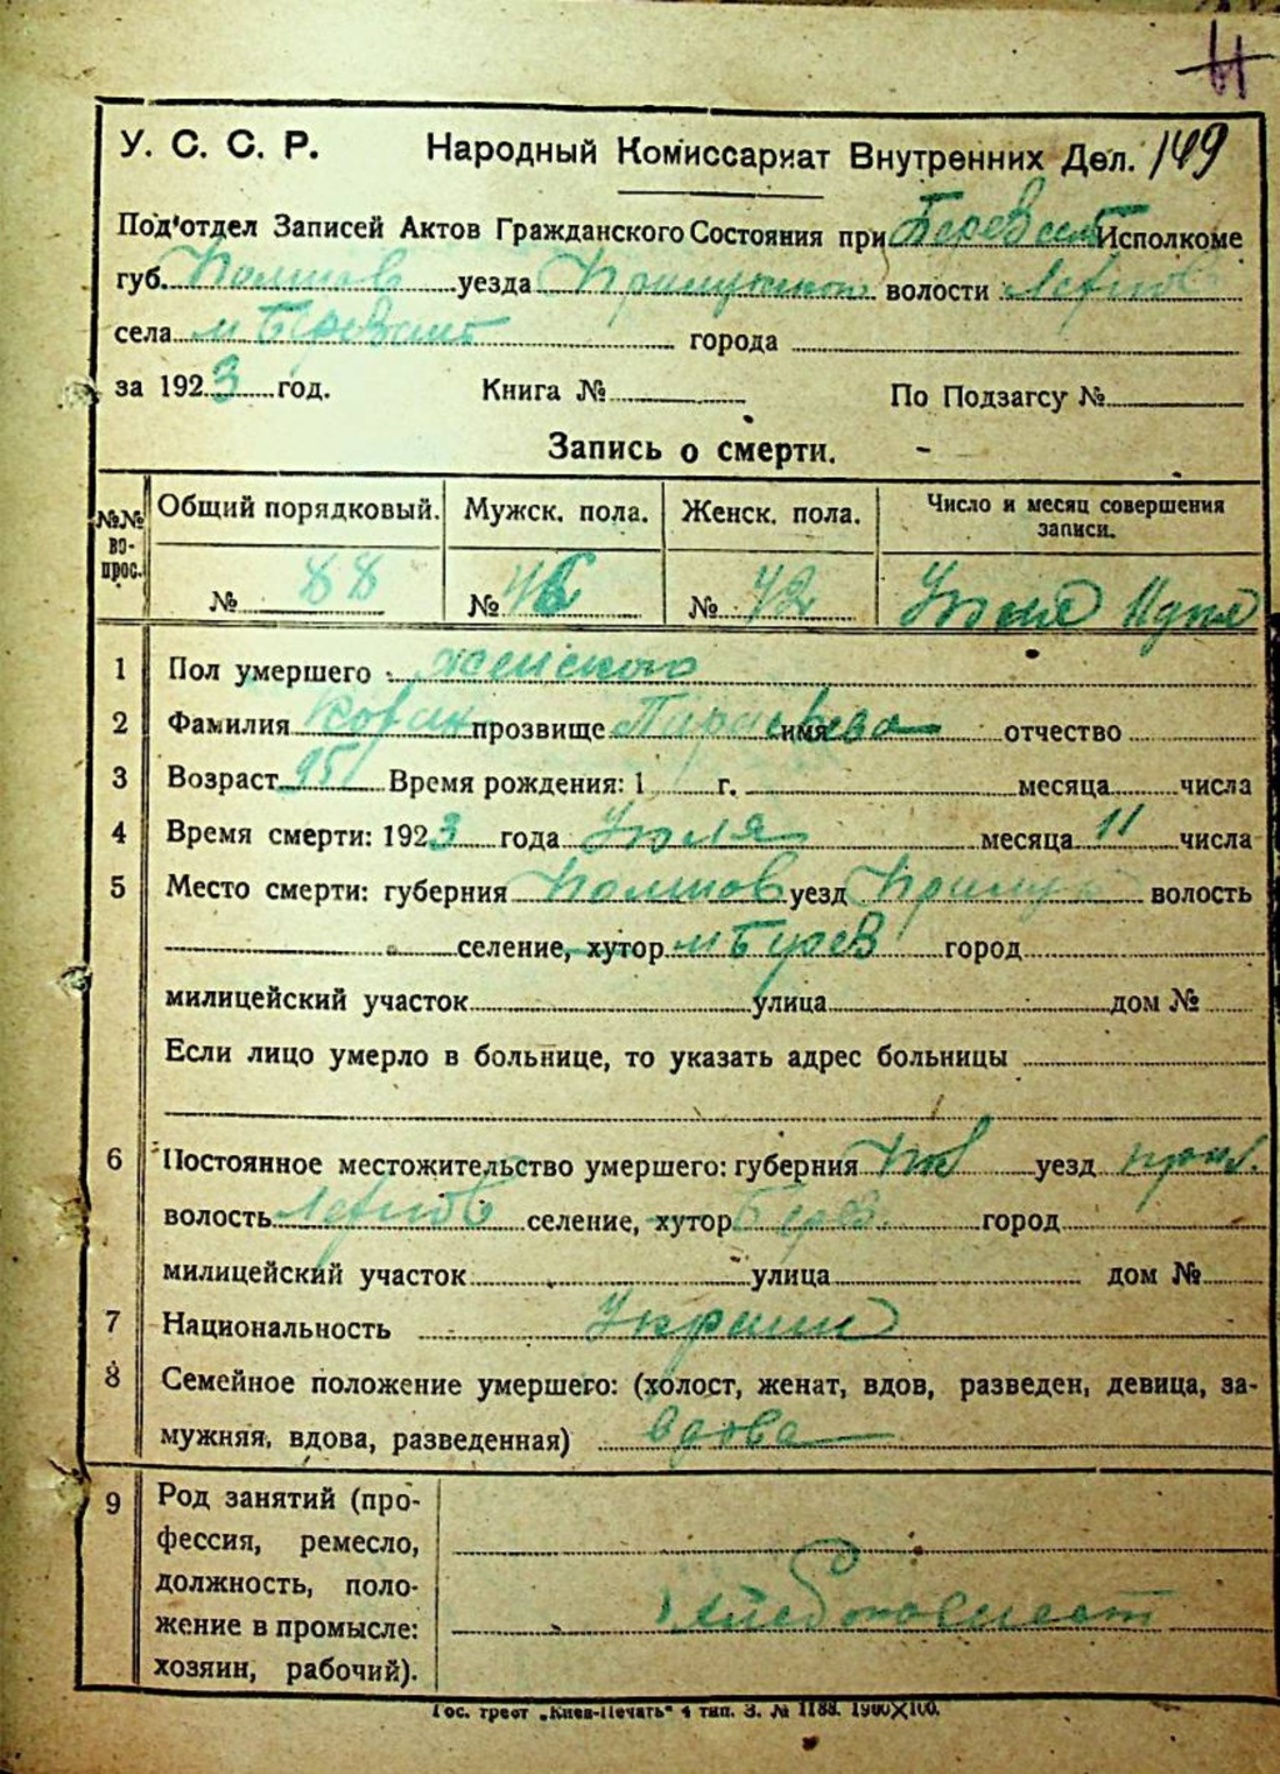 У. С. С. Р. Народный Комиссариат Внутренних Дел. 149
Под'отдел Записей Актов Гражданского Состояния при Исполкоме
губ. Полтов уезда волости
села города
за 1923 год. Книга № По Подзагсу №
Запись о смерти.
№№ вопрос. Общий порядковый. Мужск. пола. Женск. пола. Число и месяц совершения записи.
№ 88 № 46 № 42
1 Пол умершего женского
2 Фамилия прозвище имя отчество
3 Возраст 95 Время рождения: 1 г. месяца числа
4 Время смерти: 1923 года Июля месяца 11 числа
5 Место смерти: губерния Полтов уезд волость
селение, хутор город
милицейский участок улица дом №
Если лицо умерло в больнице, то указать адрес больницы
6 Постоянное местожительство умершего: губерния уезд
волость селение, хутор город
милицейский участок улица дом №
7 Национальность
8 Семейное положение умершего: (холост, женат, вдов, разведен, девица, за-
мужняя, вдова, разведенная) вдова
9 Род занятий (про-
фессия, ремесло,
должность, поло-
жение в промысле:
хозяин, рабочий).
Гос. трест „Киев-Печать" 4 тип. З. № 1188. 1900X100.